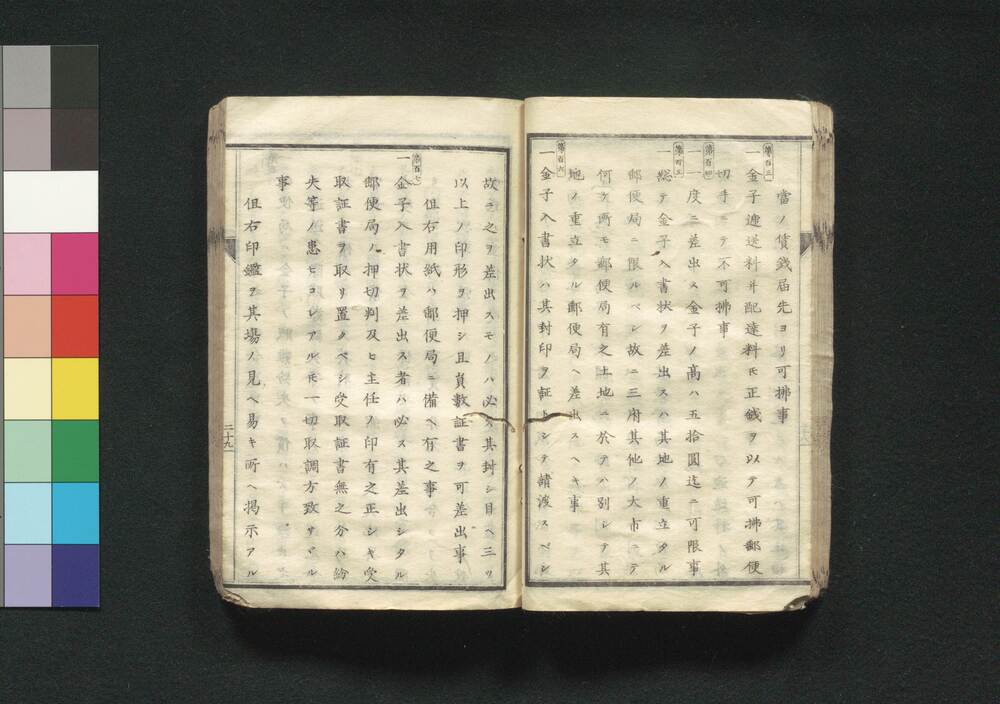 當ノ賃錢届先ヨリ可拂事
第百三
一金子遞送料并配達料𪜈正錢ヲ以テ可拂郵便
切手ニテ不可拂事
第百四
一一度ニ差出ス金子ノ高ハ五拾圓迄ニ可限事
第百五
一総テ金子入書状ヲ差出スハ其地ノ重立タル
郵便局ニ限ルベシ故ニ三府其他ノ大市ニテ
何ヶ所モ郵便局有之土地ニ於テハ別シテ其
地ノ重立タル郵便局ヘ差出スヘキ事
第百六
一金子入書状ハ其封印ヲ証トシテ請渡スベシ
故ニ之ヲ差出スモノハ必ス其封シ目ヘ三ツ
以上ノ印形ヲ押シ且員數証書ヲ可差出事
但右用紙ハ郵便局ニ備ヘ有之事
第百七
一金子入書状ヲ差出ス者ハ必ス其差出シタル
郵便局ノ押切判及ヒ主任ノ印有之正シキ受
取証書ヲ取リ置クベシ受取証書無之分ハ紛
失等ノ患ヒコレアル𪜈一切取調方致サヾル
事
但右印鑑ヲ其場ノ見ヘ易キ所ヘ掲示アル
二十九